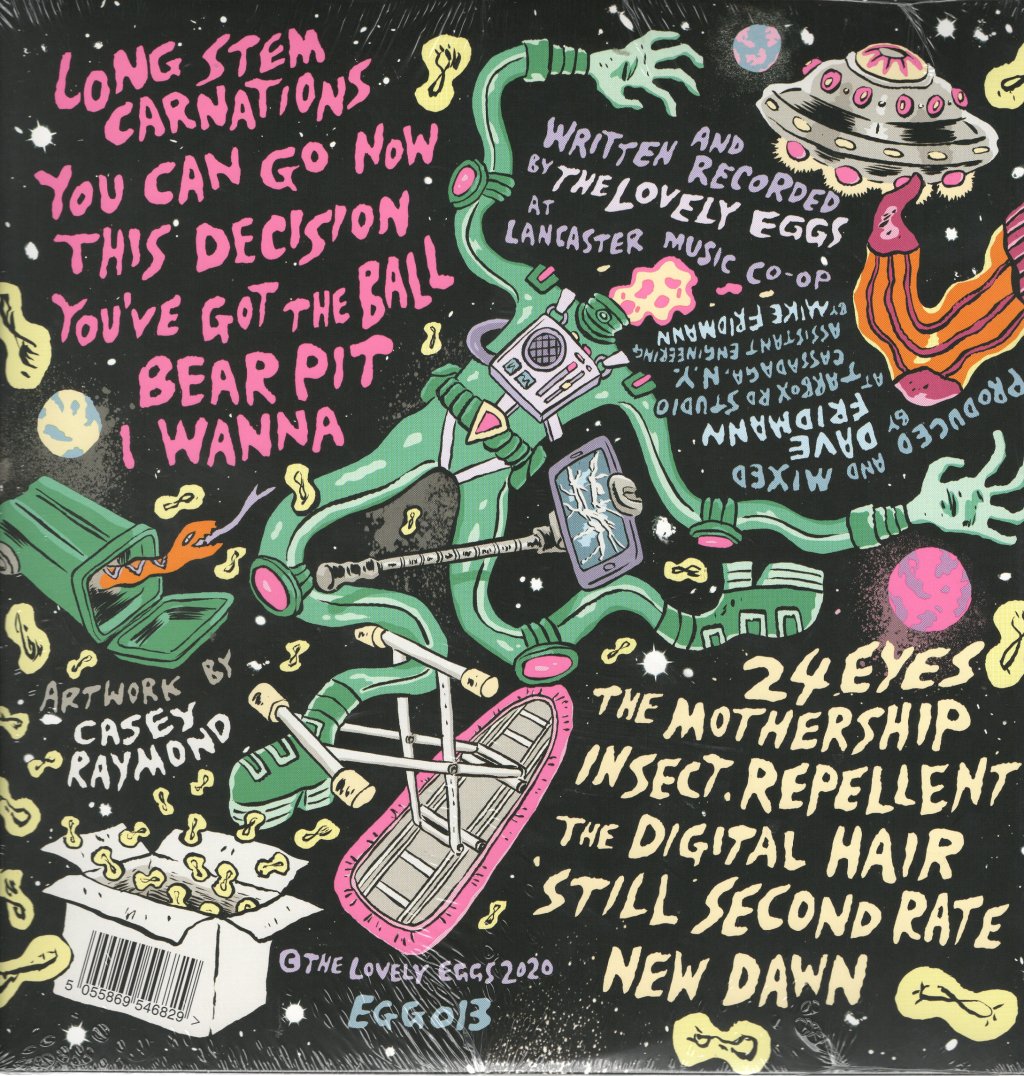 LONG STEM
CARNATIONS
YOU CAN GO NOW
THIS DECISION
YOU'VE GOT THE BALL
BEAR PIT
I WANNA
WRITTEN AND RECORDED
BY THE LOVELY EGGS
AT
LANCASTER MUSIC CO-OP
PRODUCED BY
AND MIXED
DAVE
FRIDMANN
AT TARBOX RD STUDIO
CASSADAGA, N.Y.
ASSISTANT ENGINEERING
BY MIKE FRIDMANN
ARTWORK BY
CASEY
RAYMOND
24 EYES
THE MOTHERSHIP
INSECT REPELLENT
THE DIGITAL HAIR
STILL SECOND RATE
NEW DAWN
5 055869 546829 >
© THE LOVELY EGGS 2020
EGG013